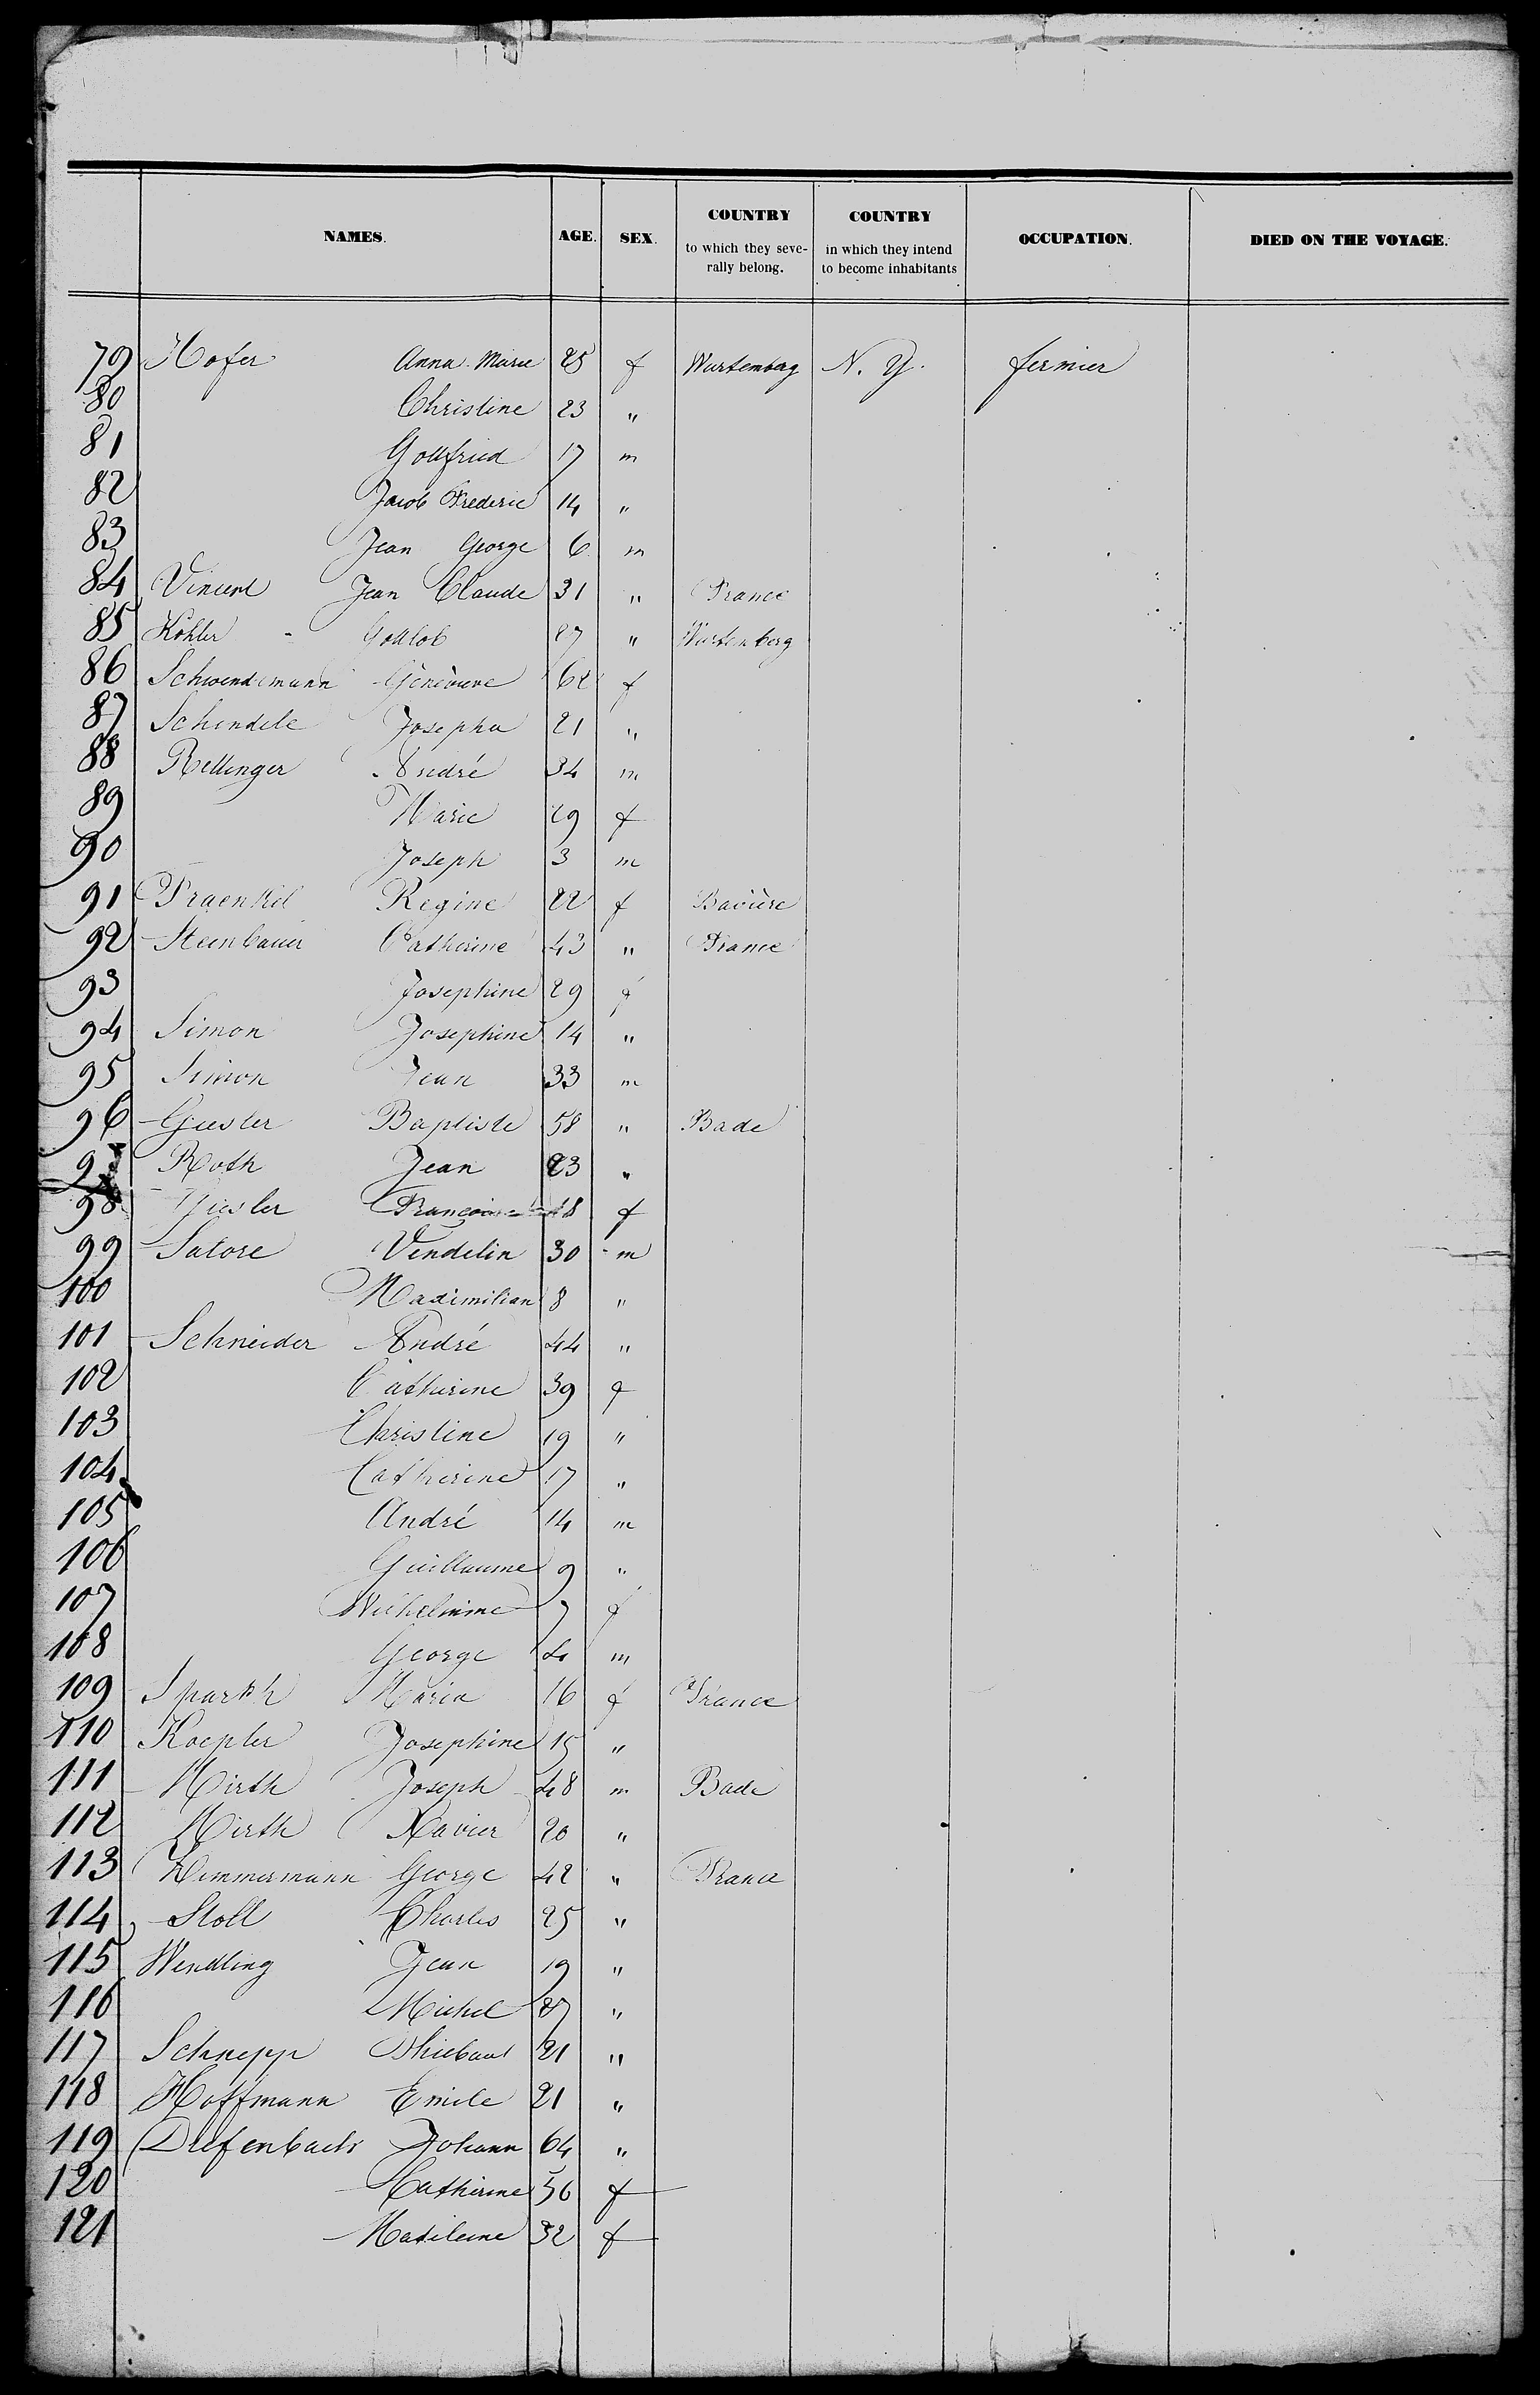 NAMES. AGE. SEX. COUNTRY to which they seve- rally belong. COUNTRY in which they intend to become inhabitants OCCUPATION. DIED ON THE VOYAGE.
79 Hofer Anna Marie 25 f Wurtemberg N. Y. fermier
80 Christine 23 "
81 Gottfried 17 m
82 Jacob Frederic 14 "
83 Jean George 6 m
84 Vincent Jean Claude 31 " France
85 Kohler Gottlob 27 " Wurtemberg
86 Schwendemann Géneviève 62 f
87 Schindele Josepha 21 "
88 Rettinger André 34 m
89 Marie 29 f
90 Joseph 3 m
91 Fraenkel Regine 22 f Bavière
92 Steinbauer Catherine 43 " France
93 Josephine 29 f
94 Simon Josephine 14 "
95 Simon Jean 33 m
96 Giesler Baptiste 58 " Bade
97 Roth Jean 23 "
98 Giesler 18 f
99 Satore Vendelin 30 m
100 Maximilian 8 "
101 Schneider André 44 "
102 Catherine 39 f
103 Christine 19 "
104 Catherine 17 "
105 André 14 m
106 Guillaume 9 "
107 Wilhelmine 7 f
108 George 4 m
109 Maria 16 f France
110 Koepler Josephine 15 "
111 Hirth Joseph 48 m Bade
112 Hirth Xavier 20 "
113 Zimmermann George 42 " France
114 Stoll Charles 25 "
115 Wendling Jean 19 "
116 Michel 27 "
117 Schnepp Thiebaut 21 "
118 Hoffmann Emile 21 "
119 Diefenbach Johann 64 "
120 Catherine 56 f
121 Madeleine 32 f